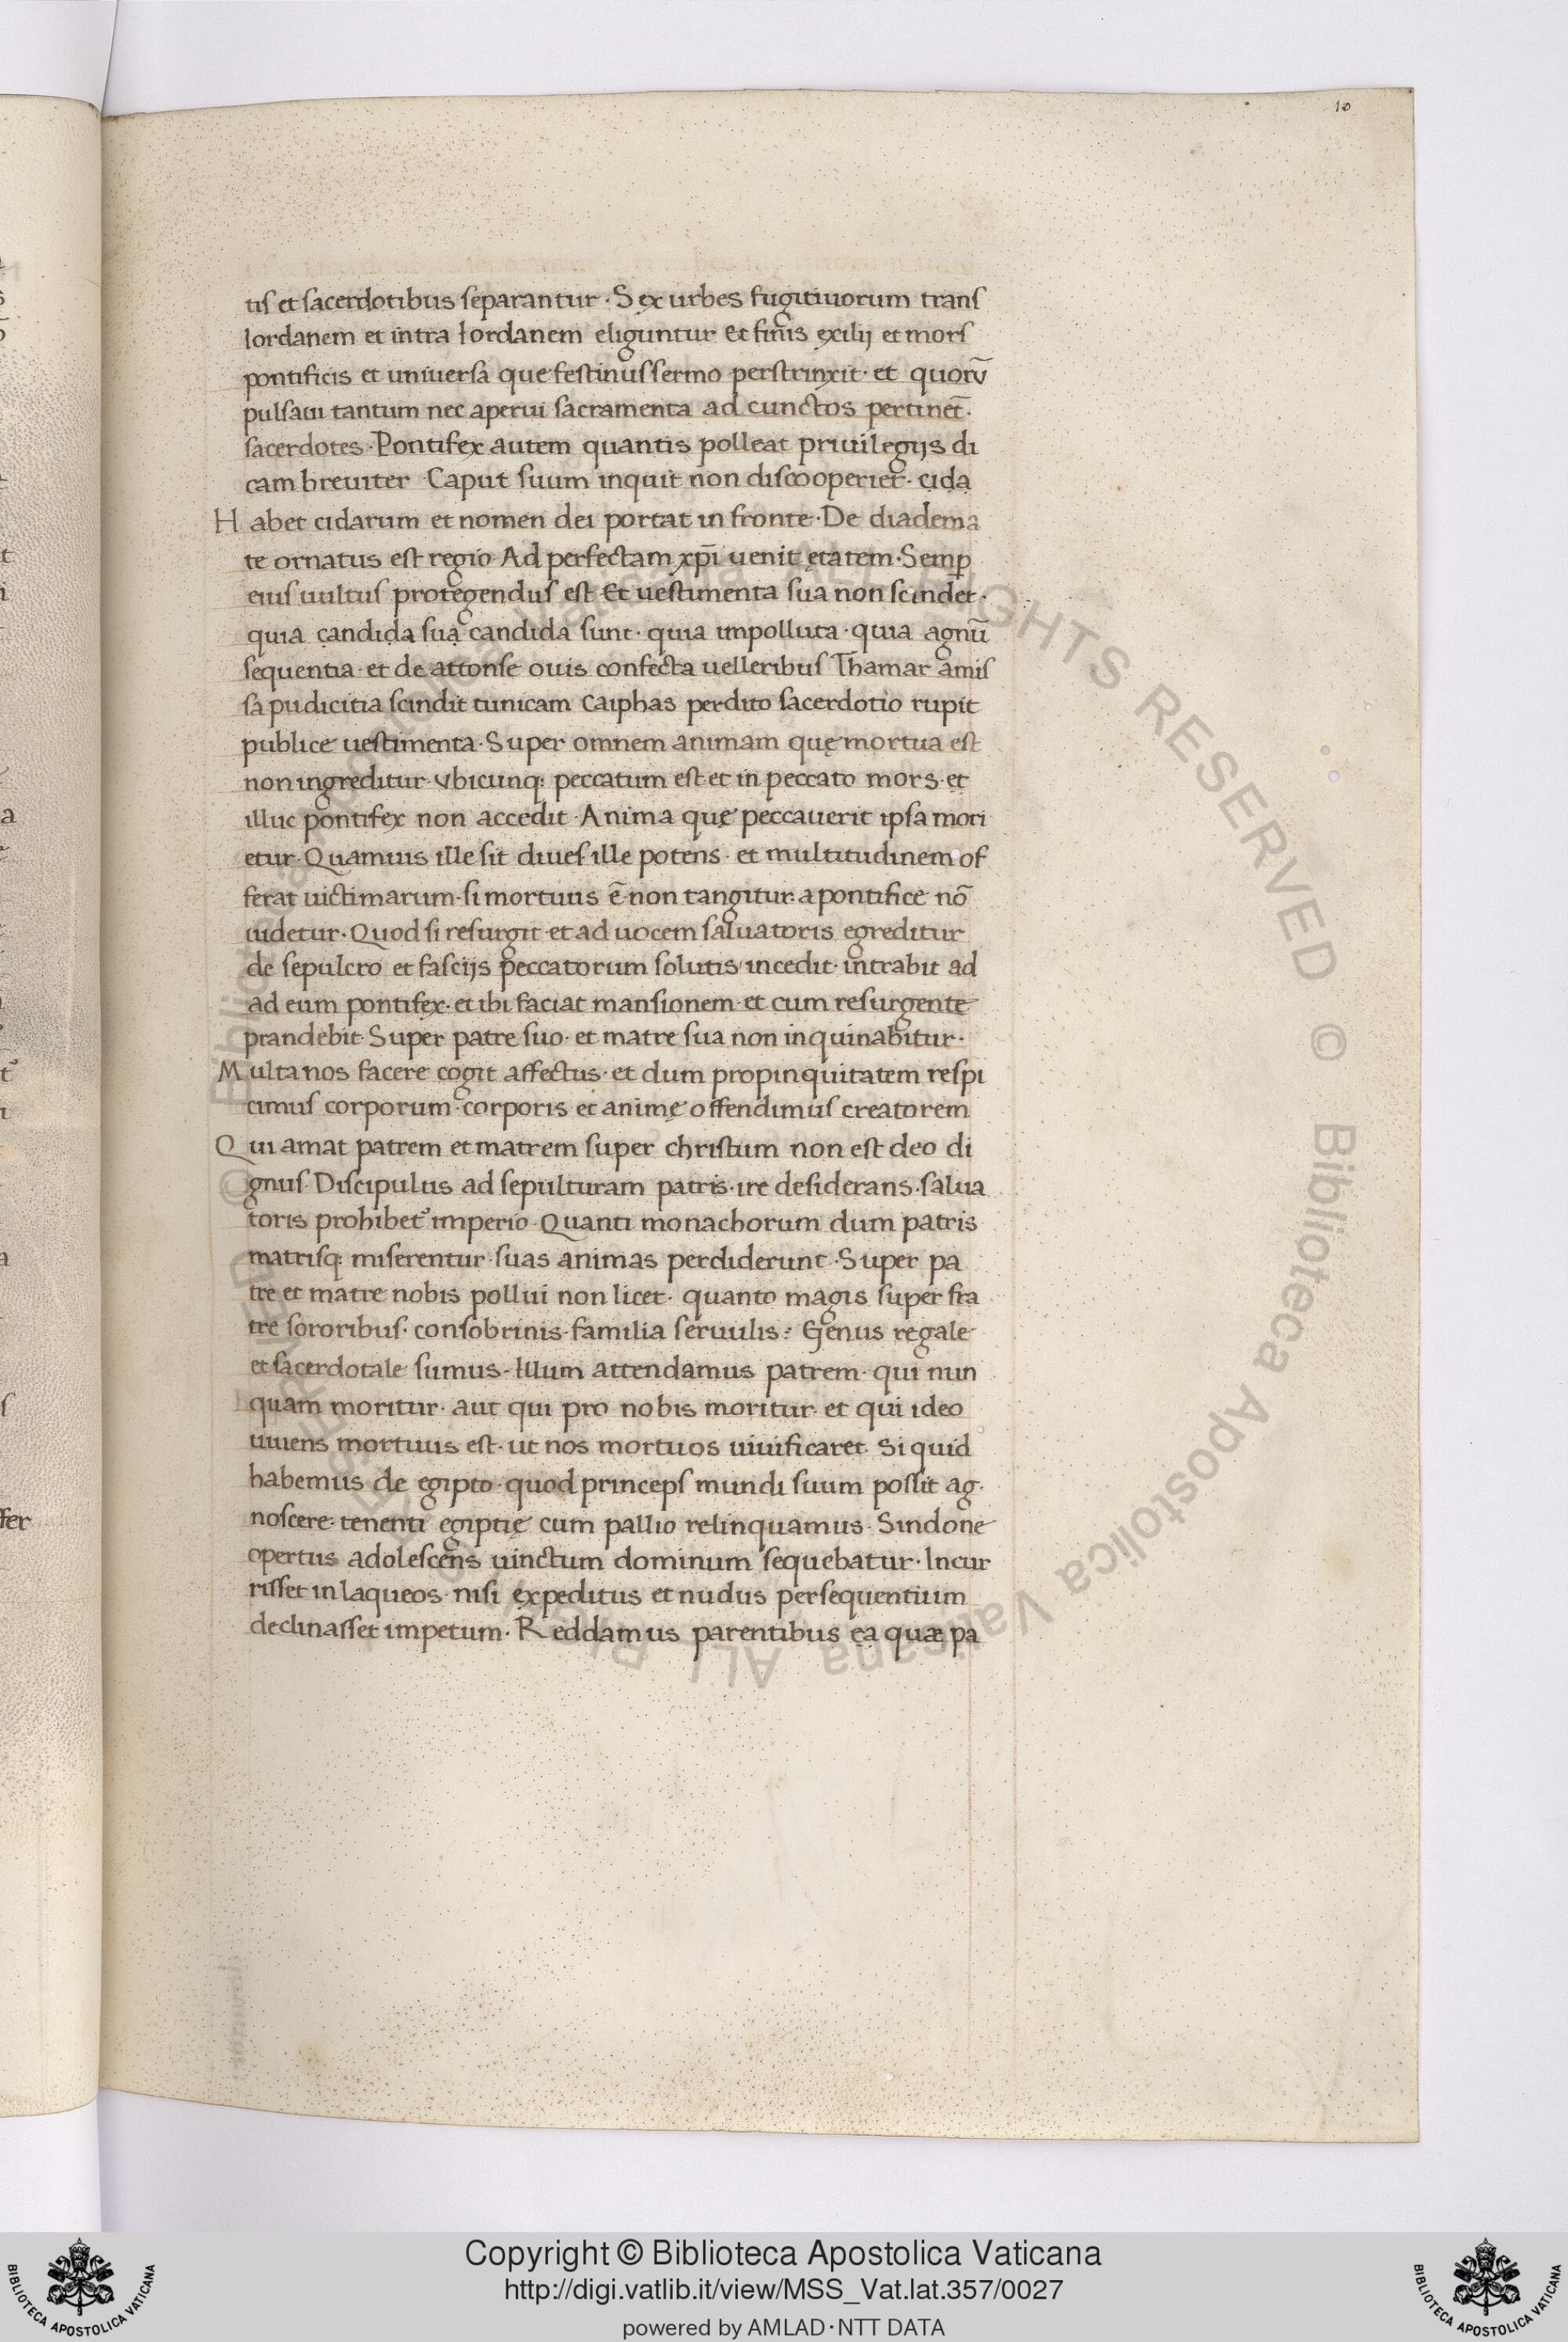 10
tis et sacerdotibus separantur · Sex urbes fugitiuorum trans
Iordanem et intra Iordanem eliguntur Et finis exilij et mors
pontificis et uniuersa que festinus sermo perstrinxit · et quorū
pulsaui tantum nec aperui sacramenta ad cunctos pertinet̄ ·
sacerdotes · Pontifex autem quantis polleat priuilegijs di
cam breuiter · Caput suum inquit non discooperiet · cida
Habet cidarum et nomen dei portat in fronte · De diadema
te ornatus est regio · Ad perfectam xp̄i uenit ętatem · Semꝑ
eius uultus protegendus est Et uestimenta sua non scindet ·
quia candida sua candida sunt · quia impolluta · quia agnū
sequentia · et de attonse ouis confecta uelleribus Thamar amis
sa pudicitia scindit tunicam Caiphas perdito sacerdotio rupit
publice uestimenta · Super omnem animam quę mortua est
non ingreditur · vbicunq: peccatum est et in peccato mors · et
illuc pontifex non accedit · Anima quę peccauerit ipsa mori
etur · Quamuis ille sit diues ille potens · et multitudinem of
ferat uictimarum · si mortuus ē non tangitur · a pontifice nō
uidetur · Quod si resurgit · et ad uocem saluatoris egreditur
de sepulcro et fascijs peccatorum solutis incedit · intrabit ad
ad eum pontifex · et ibi faciat mansionem · et cum resurgente
prandebit · Super patre suo · et matre sua non inquinabitur ·
Multa nos facere cogit affectus · et dum propinquitatem respi
cimus corporum · corporis et animę offendimus creatorem
Qui amat patrem et matrem super christum non est deo di
gnus · Discipulus ad sepulturam patris · ire desiderans · salua
toris prohibet᷒ imperio · Quanti monachorum dum patris
matrisq: miserentur · suas animas perdiderunt · Super pa
tre et matre nobis pollui non licet · quanto magis super fra
tre sororibus · consobrinis · familia seruulis : Genus regale
et sacerdotale sumus · Illum attendamus patrem · qui nun
quam moritur · aut qui pro nobis moritur · et qui ideo
uiuens mortuus est · ut nos mortuos uiuificaret · Si quid
habemus de egipto · quod princeps mundi suum possit ag ·
noscere : tenenti egiptię cum pallio relinquamus · Sindone
opertus adolescens uinctum dominum sequebatur · Incur
risset in laqueos · nisi expeditus et nudus persequentium
declinasset impetum · Reddamus parentibus ea quæ pa
Copyright © Biblioteca Apostolica Vaticana
http://digi.vatlib.it/view/MSS_Vat.lat.357/0027
powered by AMLAD · NTT DATA
BIBLIOTECA APOSTOLICA VATICANA
BIBLIOTECA APOSTOLICA VATICANA